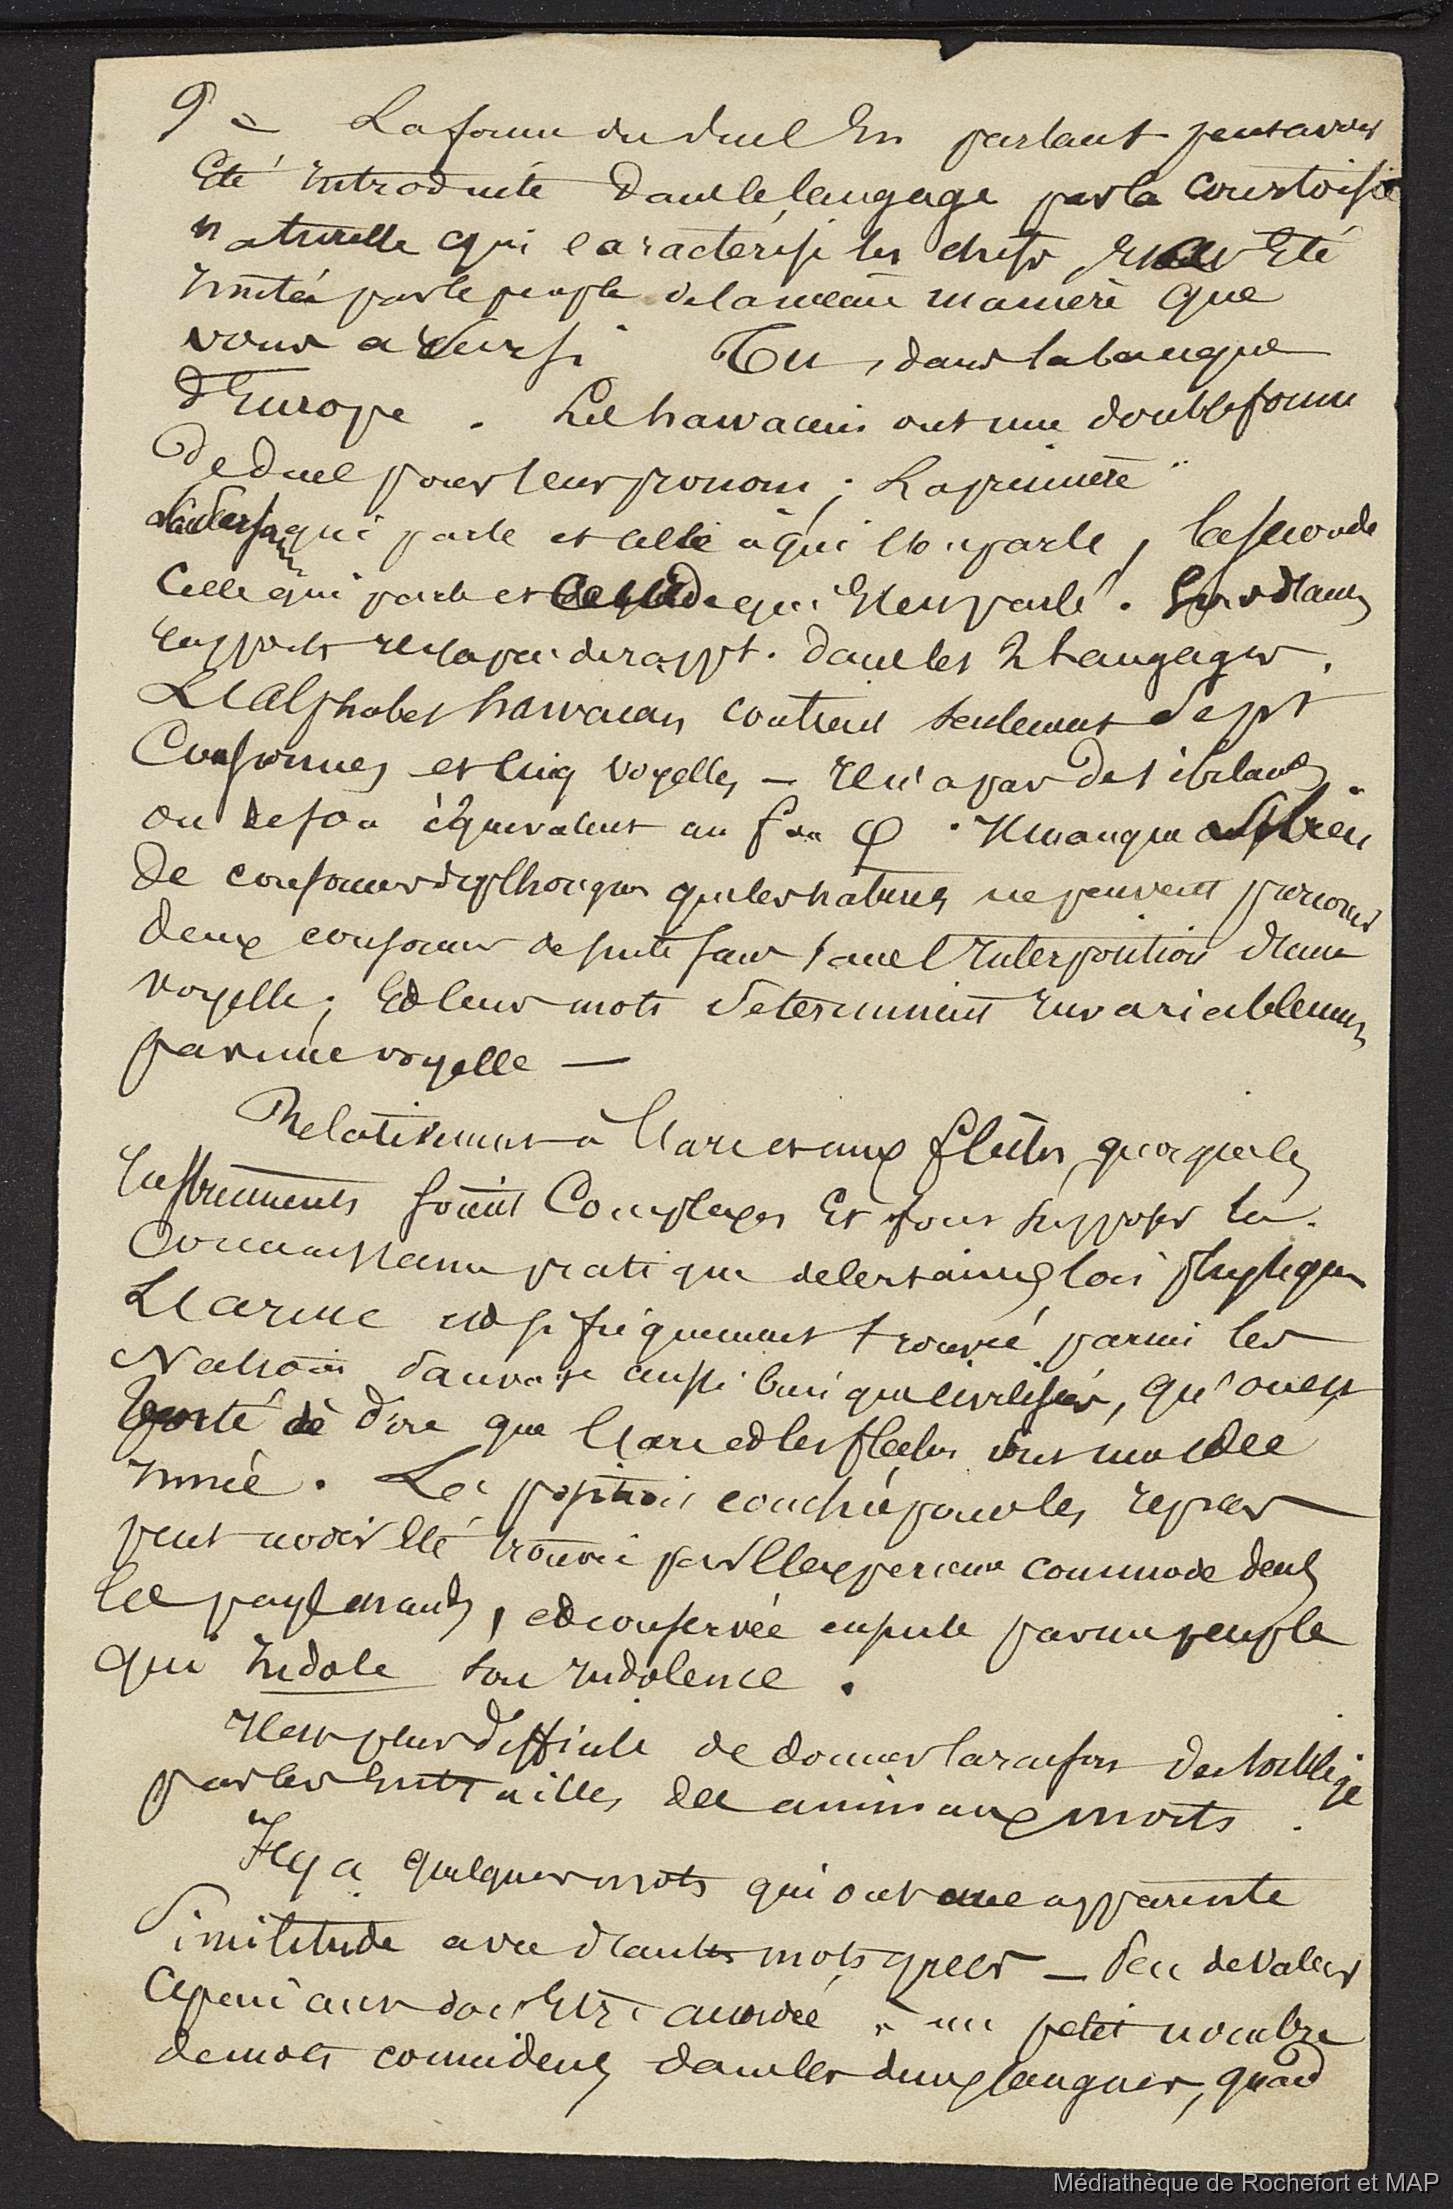 9 = La forme du duel En parlant peut avoir
Eté Introduite dans le langage par la courtoisie
naturelle qui caractérise les chefs et Eté
Imitée par le peuple de la même manière que
vous a Tu, dans la langue
d'Europe. Les hawaiens ont une double forme
De duel pour leur pronom; La première
qui parle et celle à qui Elle parle, la seconde
Celle qui parle et de qui Il est parlé. D'autres
rapports Il n'y a pas de rappt. dans les 2 Langages.
L'Alphabet hawaian contient seulement Sept
Consonnes et cinq voyelles — Il n'a pas de sibilantes
ou de son équivalent au φ. Il manque aussi bien
De consonnes dipthongues que les natives ne peuvent prononcer
deux consonnes de suite sans l'Interposition d'une
voyelle; Et leurs mots se terminent Invariablement
par une voyelle —
Relativement à l'arc et aux flèches, quoique les
Instruments soient Complexes Et font supposer la
Connaissance pratique de certaines lois physiques
L'arme est si fréquemment trouvée parmi les
Nations sauvages aussi bien que civilisées, qu'on est
porté à dire que l'arc et les flèches sont une idée
Innée. La position couchée pour les repas
peut avoir Eté trouvée par l'Expérience commode dans
les pays chauds, et conservée ensuite par un peuple
qui Indole son Indolence.
Il est plus difficile de donner la raison
par les Entrailles des animaux morts.
Il y a quelques mots qui ont une apparente
Similitude avec d'autres mots grecs — Peu de valeur
cependant doit Etre accordée à un petit nombre
de mots coincidents dans les deux langues, quand